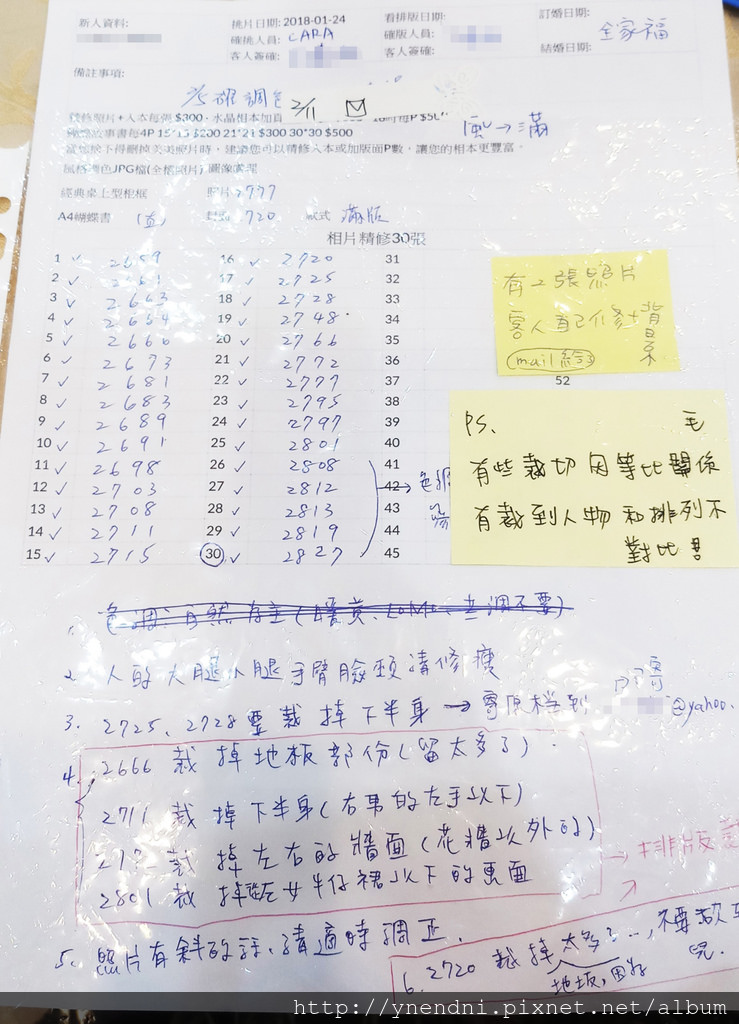 新人資料:
挑片日期: 2018-01-24
看排版日期:
訂婚日期:
全家福
確挑人員: CARA
確版人員:
結婚日期:
客人簽確:
客人簽確:
備註事項:
2/5 確調色 2/11
精修照片+入本每張 $300、水晶相本加頁
故事書每4P 15*15 $200 21*21 $300 30*30 $500
風→滿
當您捨不得刪掉美美照片時,建議您可以精修入本或加版面P數,讓您的相本更豐富。
風格調色JPG檔(全格照片) 圖像處理
經典桌上型柜框 照片 2777
A4蝴蝶書 (直) 720 款式 滿版
相片精修30張
1 ✓ 2659 16 ✓ 2720 31
2 ✓ 2661 17 ✓ 2725 32
3 ✓ 2663 18 ✓ 2728 33
4 ✓ 2664 19 ✓ 2748 34
5 ✓ 2666 20 ✓ 2766 35
6 ✓ 2673 21 ✓ 2772 36
7 ✓ 2681 22 ✓ 2777 37 52
8 ✓ 2683 23 ✓ 2795 38
9 ✓ 2689 24 ✓ 2797 39
10 ✓ 2691 25 ✓ 2801 40
11 ✓ 2698 26 ✓ 2808 41
12 ✓ 2703 27 ✓ 2812 42
13 ✓ 2708 28 ✓ 2813 43
14 ✓ 2711 29 ✓ 2819 44
15 ✓ 2715 30 ✓ 2827 45
有2張照片
客人自己修+背景
(mail給)
PS. 毛
有些裁切因等比關係
有裁到人物和排列不
對比!!
1. 色調:自然為主
2. 人的大腿小腿手臂臉頰請修瘦
3. 2725、2728要裁掉下半身→寄原檔到 @yahoo.
4. 2666 裁掉地板部份(留太多了)
2711 裁掉下半身(右男的左手以下)
裁掉左右的牆面(花牆以外的)
2801 裁掉女牛仔裙以下的畫面
→排版
5. 照片有斜的話、請適時調正.
6. 2720 裁掉太多了…,不要
地板,
http://ynendni.pixnet.net/album